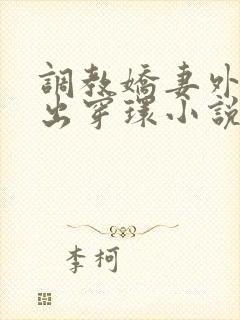 調教嬌妻外
出穿環小說
李柯